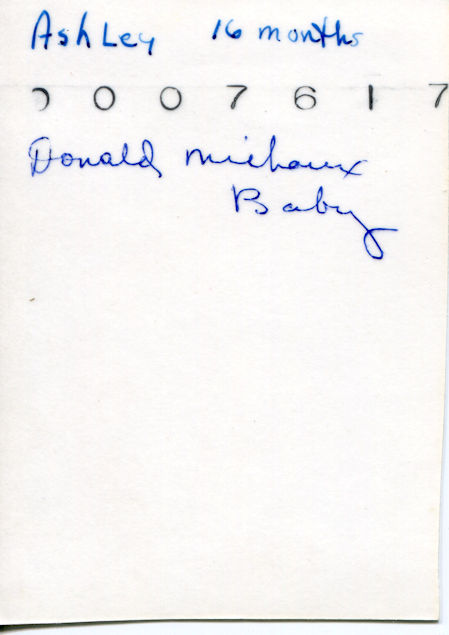 Ashley 16 months
0 0 0 7 6 1 7
Donald Michaux
Baby